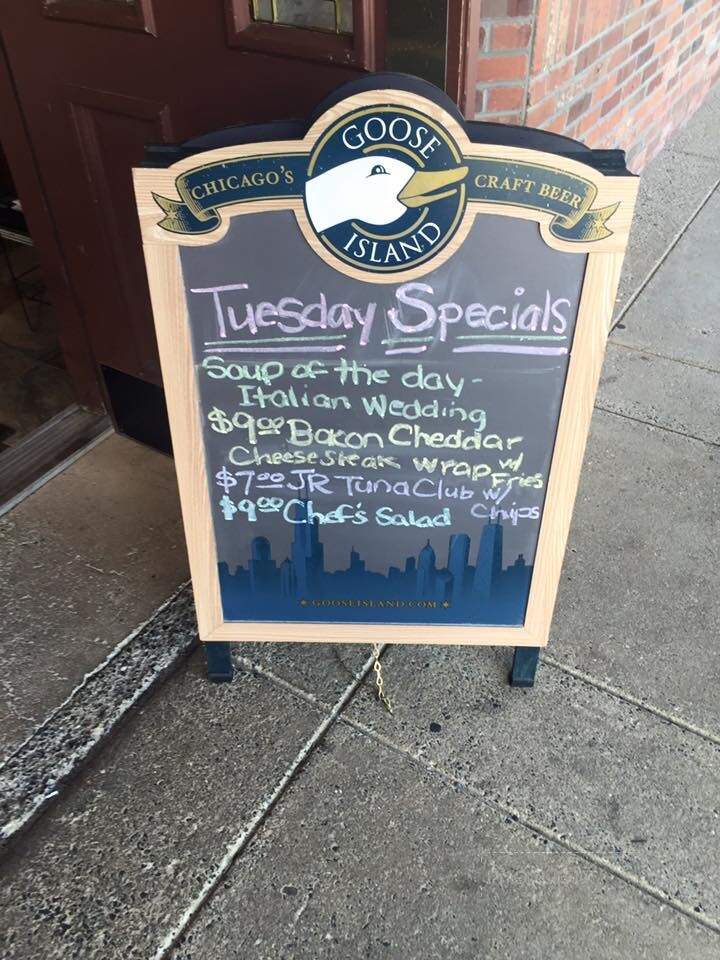 GOOSE
CHICAGO'S
CRAFT BEER
ISLAND
Tuesday Specials
Soup of the day -
Italian Wedding
$9.00 Bacon Cheddar
Cheese Steak wrap w/
Fries
$7.00 JR Tuna Club w/
Chips
$9.00 Chef's Salad
GOOSEISLAND.COM